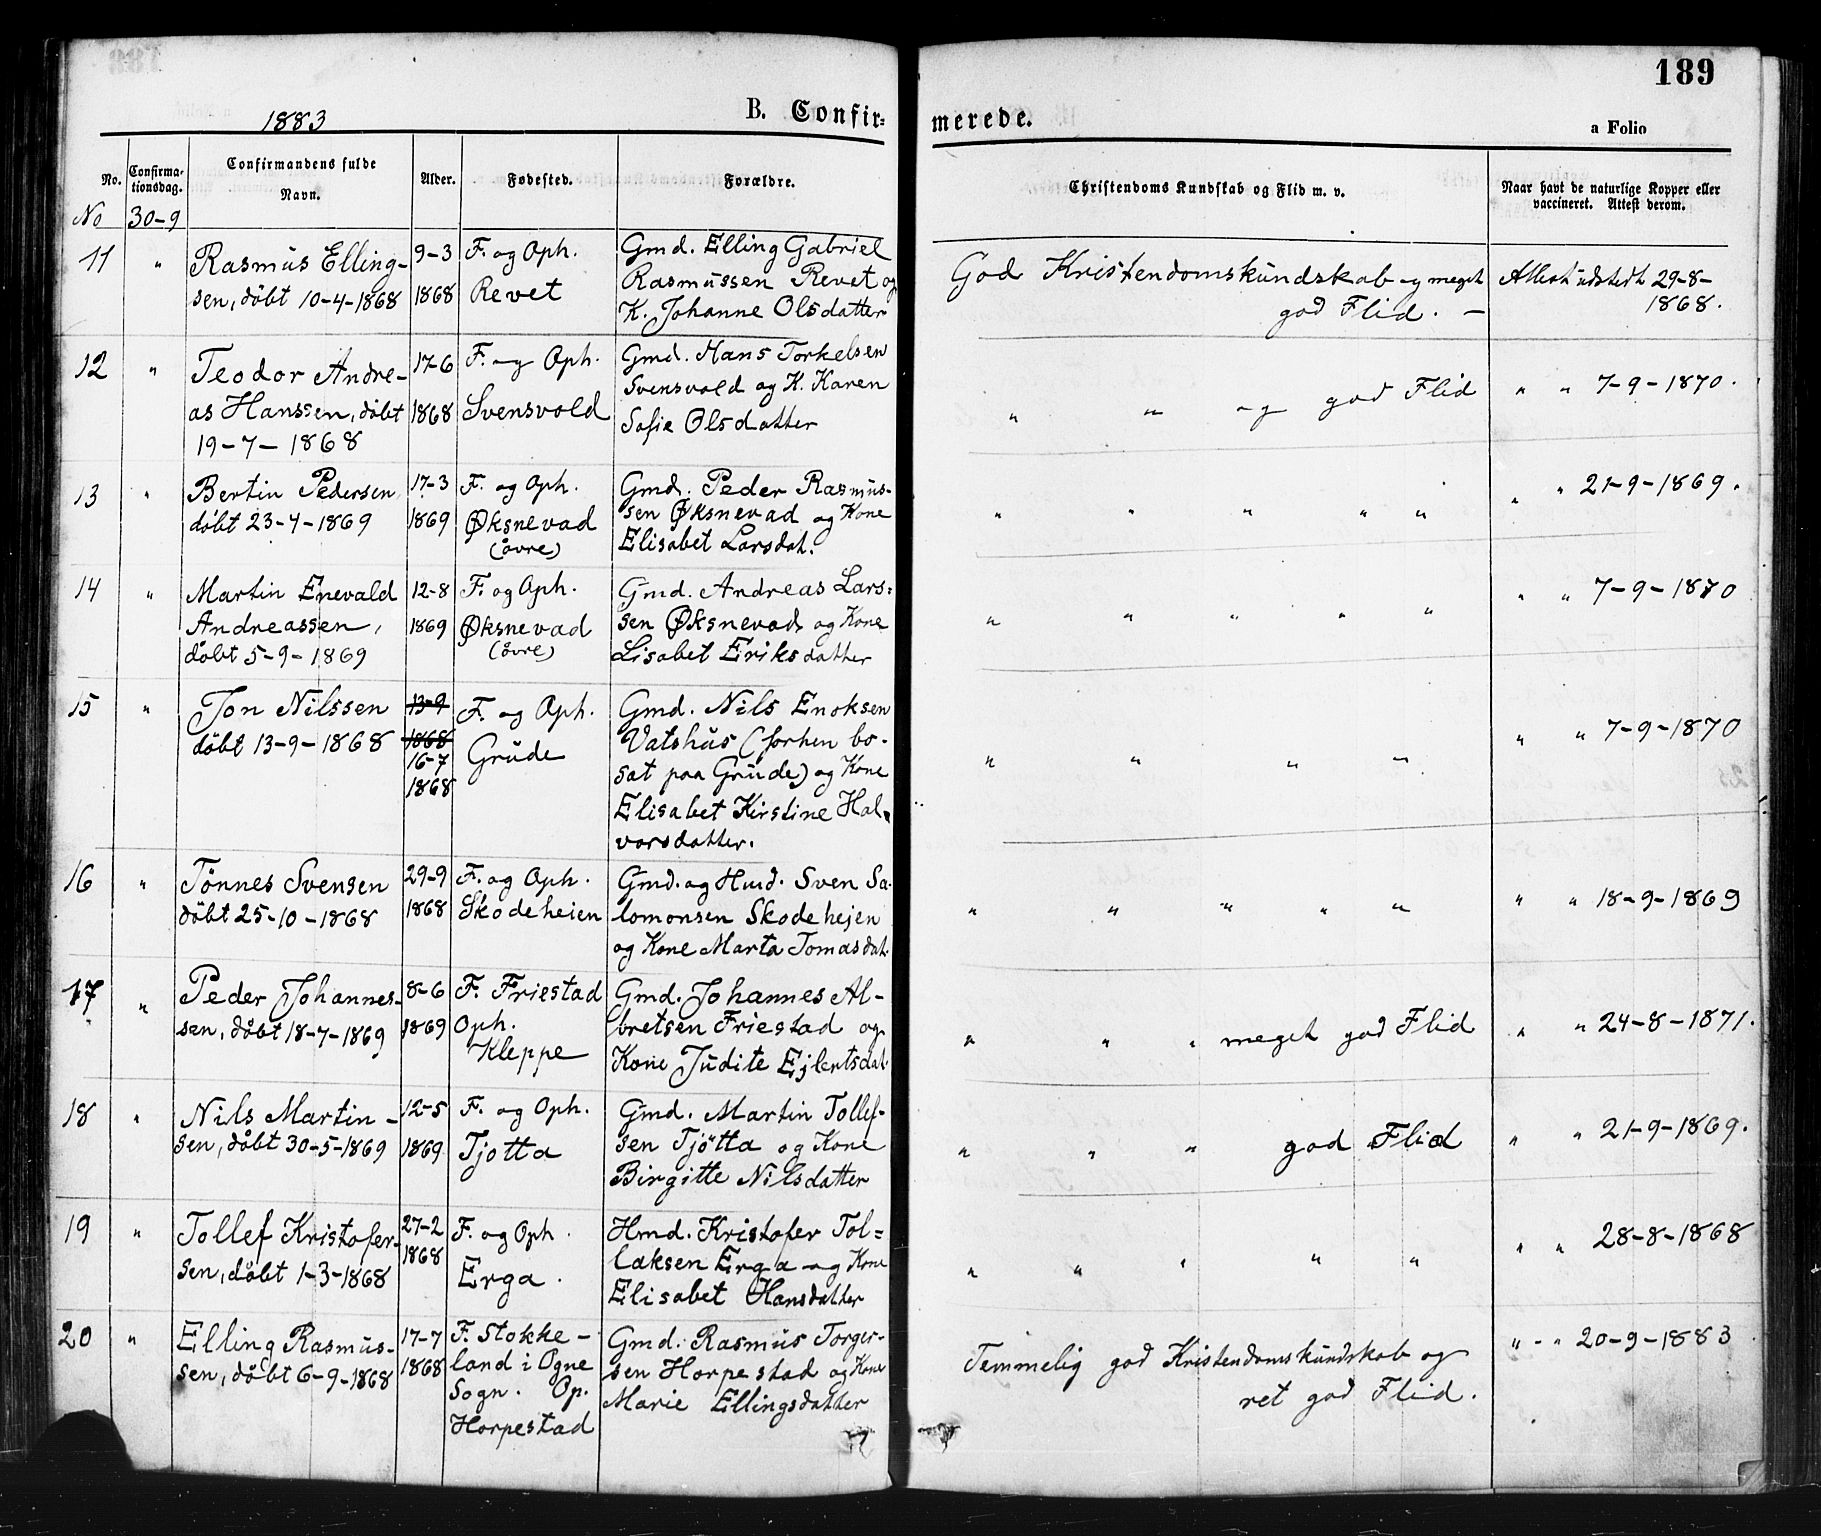 189
1883
B. Confir=
merede.
a Folio
No. Confirma-tionsdag. Confirmandens fulde Navn. Alder. Fødested. Forældre. Christendoms Kundskab og Flid m. v. Naar havt de naturlige Kopper eller vaccineret. Attest derom.
No 30-9
11 " Rasmus Elling- 9-3 F. og Oph. Gmd. Elling Gabriel God Kristendomskundskab og meget Attest udstedt 29-8-
sen, döbt 10-4-1868 1868 Revet Rasmussen Revet og god Flid. – 1868.
K. Johanne Olsdatter
12 " Teodor Andre- 17-6 F. og Oph. Gmd. Hans Torkelsen
as Hanssen, döbt 1868 Svensvold Svensvold og K. Karen " " og god Flid " " 7-9-1870.
19-7-1868 Sofie Olsdatter
13 " Bertin Pedersen, 17-3 F. og Oph. Gmd. Peder Rasmus-
döbt 23-4-1869 1869 Øksnevad sen Øksnevad og Kone " " " " " " " 21-9-1869.
(övre) Elisabet Larsdat.
14 " Martin Enevald 12-8 F. og Oph. Gmd. Andreas Lars= " " 7-9-1870
Andreassen, 1869 Øksnevad sen Øksnevad og Kone " " " " "
döbt 5-9-1869 (övre) Lisabet Eriksdatter
15 " Jon Nilssen 13-9 F. og Oph. Gmd. Nils Enoksen
döbt 13-9-1868 1868 Grude Vatshus (forhen bo- " " " " " " 7-9-1870
16-7 sat paa Grude) og Kone
1868 Elisabet Kirstine Hal-
vorsdatter.
16 " Tönnes Svensen 29-9 F. og Oph. Gmd. og Hmd. Sven Sa-
döbt 25-10-1868 1868 Skodeheien lomonsen Skodehejen " " " " " " " 18-9-1869
og Kone Marta Tomasdat.
17 " Peder Johannes- 8-6 F. Friestad Gmd. Johannes Al-
sen, döbt 18-7-1869 1869 Oph. bretsen Friestad og " " " meget god Flid " " 24-8-1871.
Kleppe Kone Judite Ejlertsdat.
18 " Nils Martin- 12-5 F. og Oph. Gmd. Martin Tollef-
sen, döbt 30-5-1869 1869 Tjotta sen Tjötta og Kone " " " god Flid " " 21-9-1869.
Birgitte Nilsdatter
19 " Tollef Kristofer- 27-2 F. og Oph. Hmd. Kristofer Tol=
sen, döbt 1-3-1868 1868 Erga. laksen Erga og Kone " " " " " " " 28-8-1868
Elisabet Hansdatter
20 " Elling Rasmus- 17-7 F. Stokke- Gmd. Rasmus Torger- Temmelig god Kristendomskundskab og " - " 20-9-1883
sen, döbt 6-9-1868 1868 land i Ogne sen Horpestad og Kone ret god Flid.
Sogn. Op. Marie Ellingsdatter
Horpestad